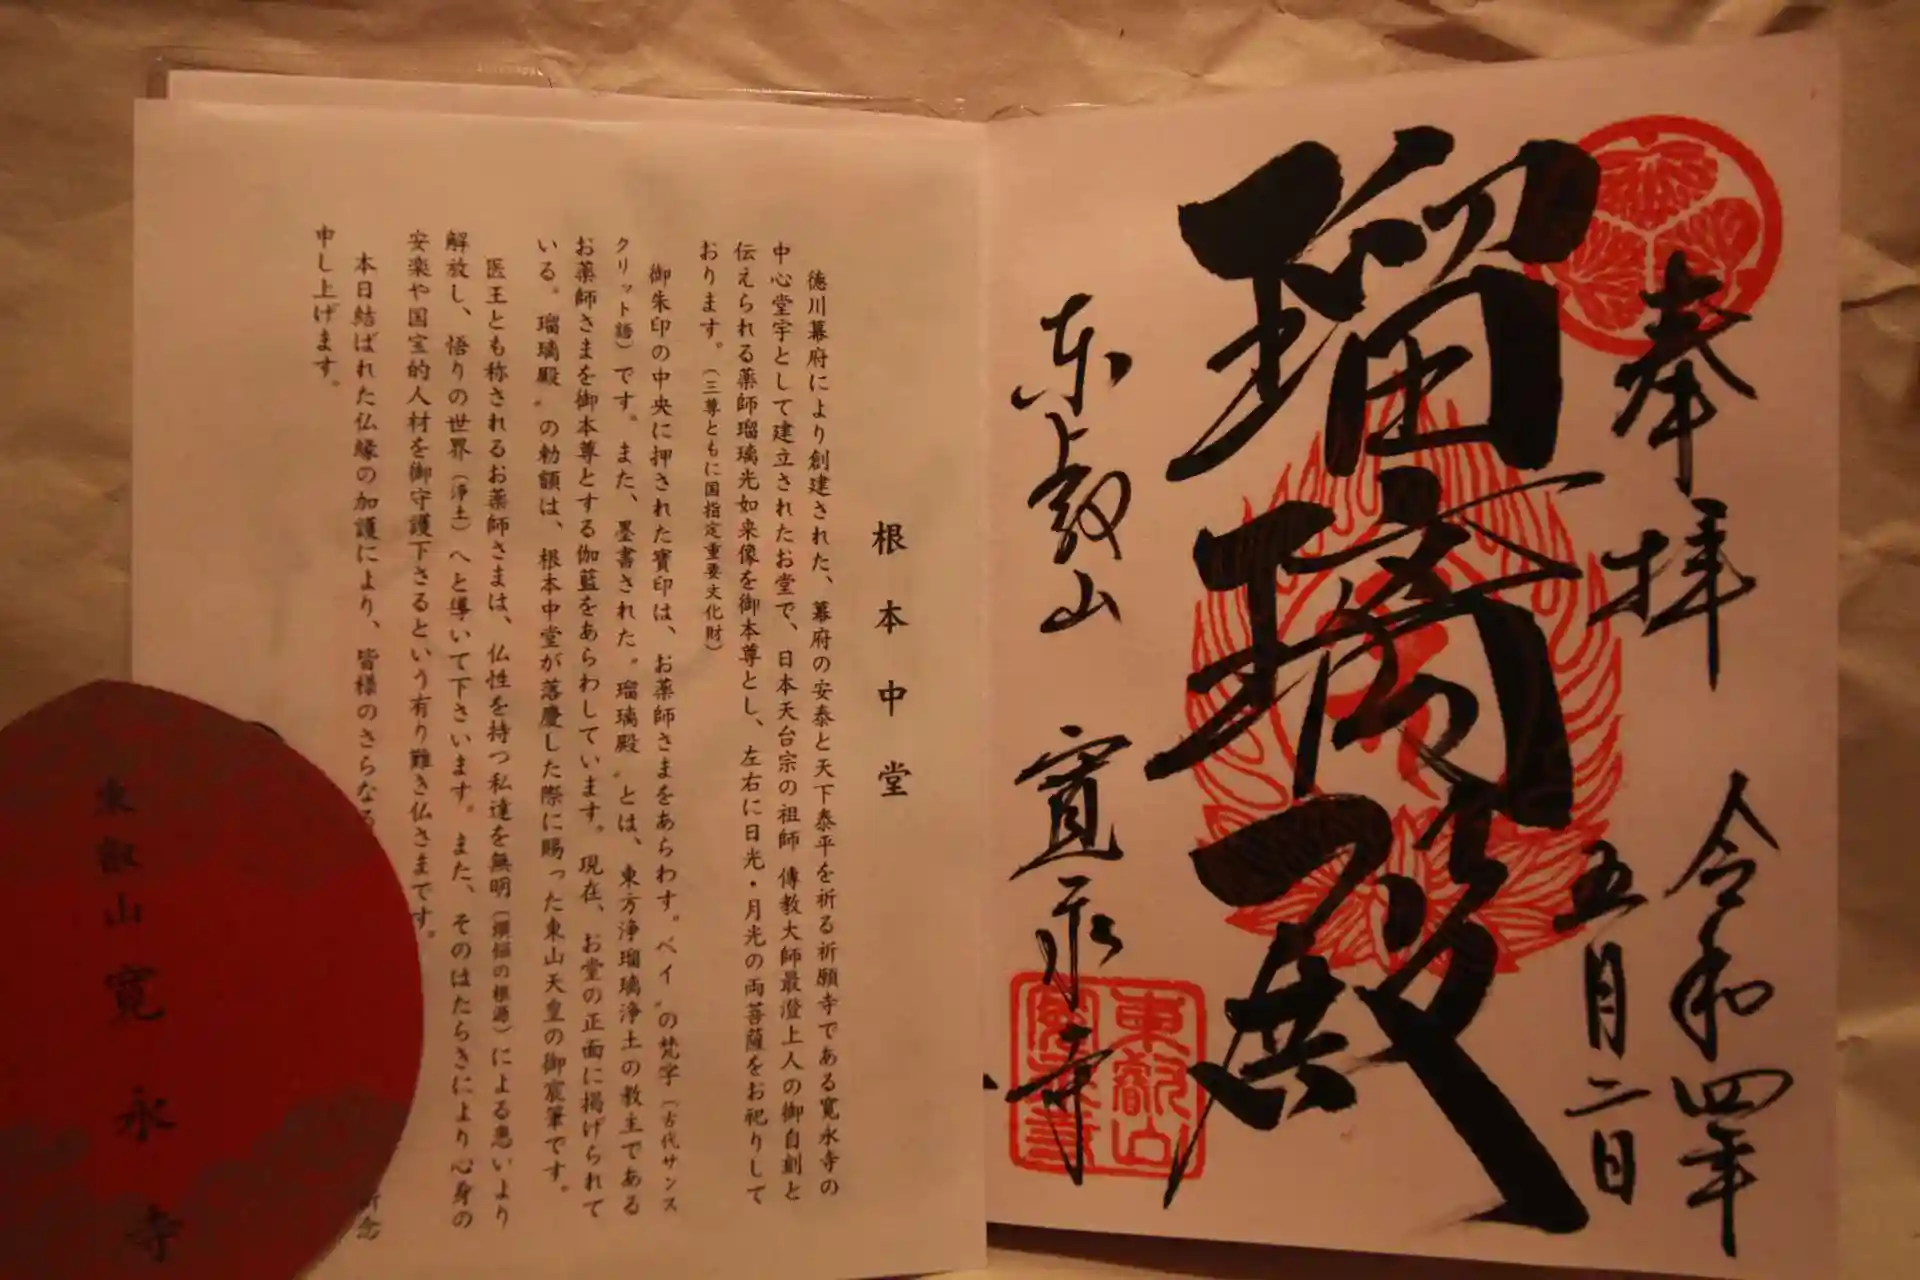 奉拝
令和四年
五月二日
瑠璃殿
東叡山 寛永寺
東叡山
寛永寺
根本中堂
徳川幕府により創建された、幕府の安泰と天下泰平を祈る祈願寺である寛永寺の
中心堂宇として建立されたお堂で、日本天台宗の祖師 傳教大師最澄上人の御自刻と
伝えられる薬師瑠璃光如来像を御本尊とし、左右に日光・月光の両菩薩をお祀りして
おります。(三尊ともに国指定重要文化財)
御朱印の中央に押された寳印は、お薬師さまをあらわす〝ベイ〟の梵字(古代サンス
クリット語)です。また、墨書された〝瑠璃殿〟とは、東方浄瑠璃浄土の教主である
お薬師さまを御本尊とする伽藍をあらわしています。現在、お堂の正面に掲げられて
いる〝瑠璃殿〟の勅額は、根本中堂が落慶した際に賜った東山天皇の御宸筆です。
医王とも称されるお薬師さまは、仏性を持つ私達を無明(煩悩の根源)による患いより
解放し、悟りの世界(浄土)へと導いて下さいます。また、そのはたらきにより心身の
安楽や国宝的人材を御守護下さるという有り難き仏さまです。
本日結ばれた仏縁の加護により、皆様のさらなる
念
申し上げます。
東叡山 寛永寺